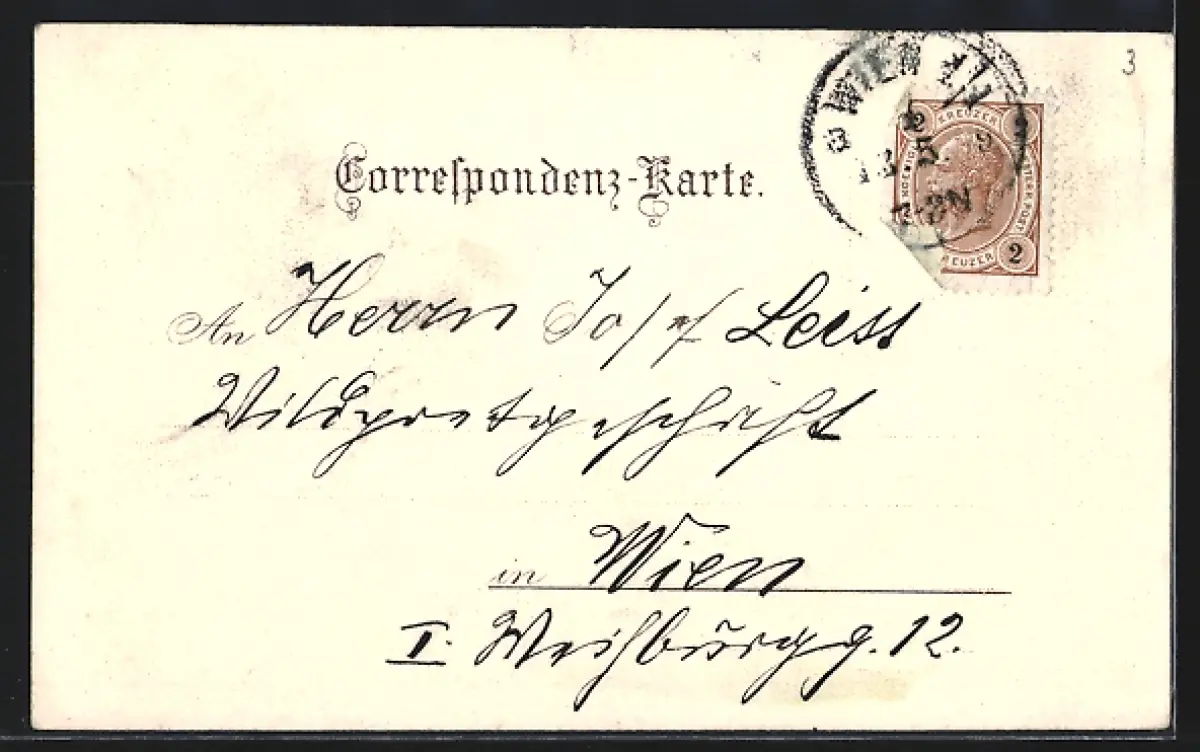 3
WIEN
2 KREUZER
Correspondenz-Karte.
KREUZER 2
An Herrn Josef Leiss
Wildpretgeschäft
in Wien
I. Weihburgg. 12.